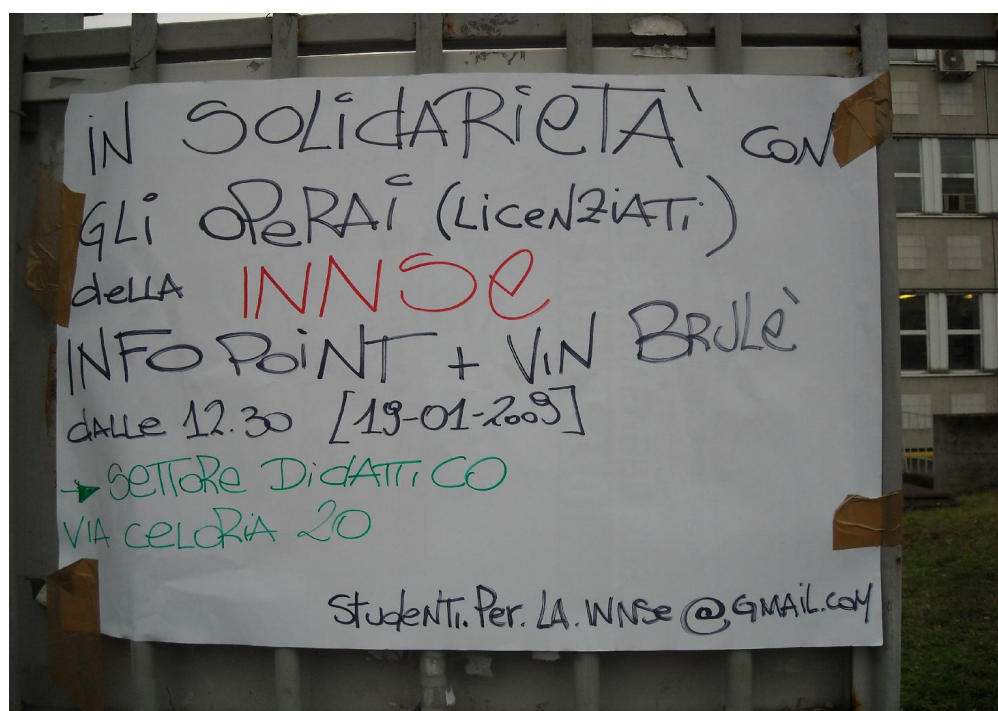 iN SOLidARieTA' CON
GLi OPeRAi (LiCeNZiATi)
deLLA INNSe
INFO POiNT + ViN BRULE'
dALLe 12.30 [19-01-2009]
→ SeTTORe DidATTiCO
VIA CeLORiA 20
STudeNTi.PeR.LA.INNSe@GMAiL.COM